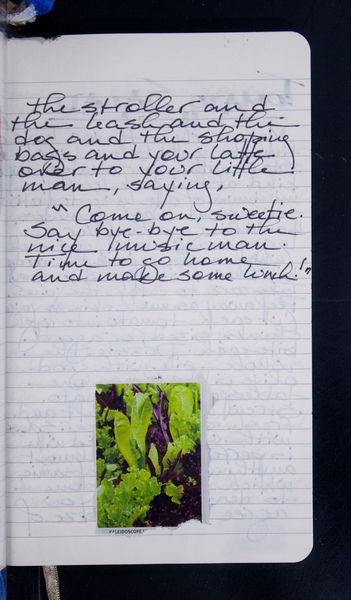 the stroller and
the leash and the
dog and the shopping
bags and your latte
over to your little
man, saying,
"Come on, sweetie.
Say bye-bye to the
nice music man.
Time to go home
and make some lunch!"
KALEIDOSCOPE!